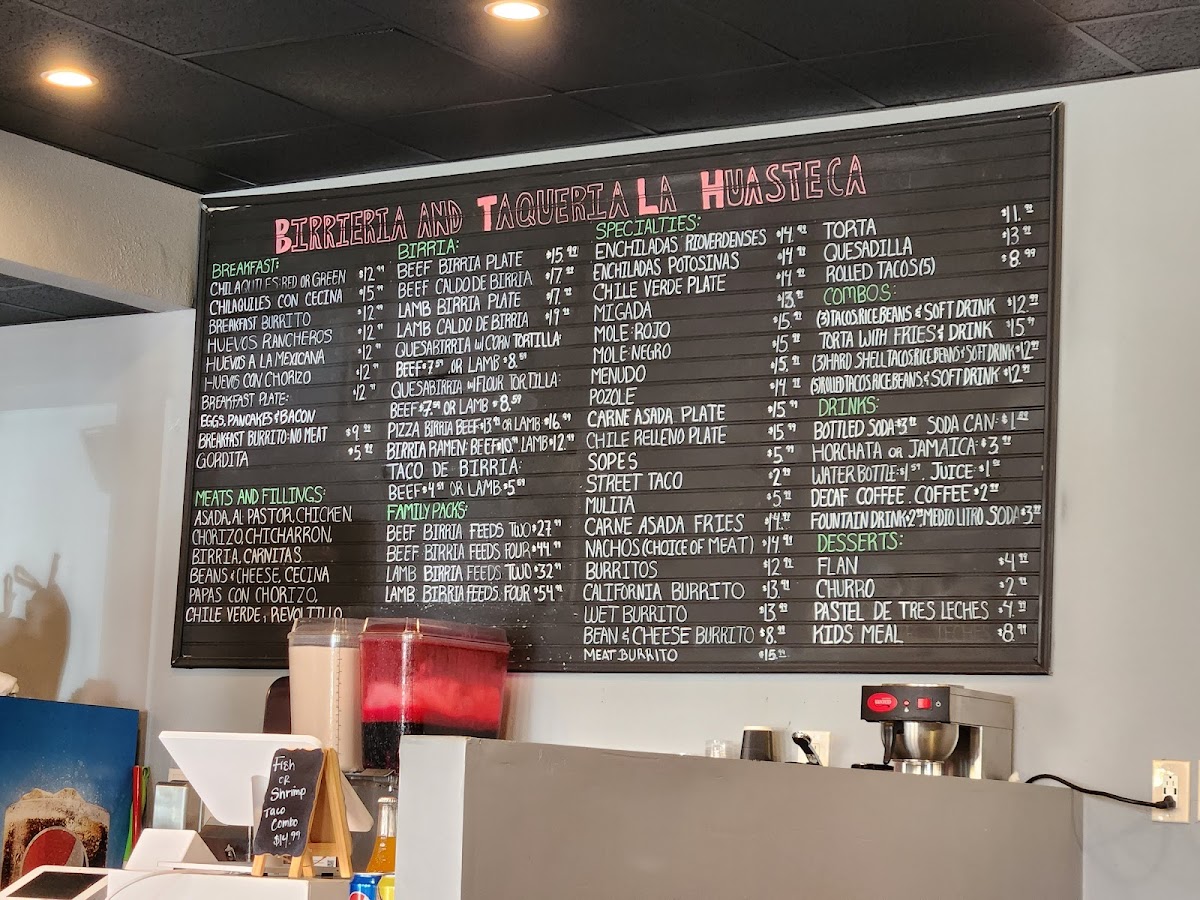 BIRRIERIA AND TAQUERIA LA HUASTECA
BREAKFAST:
CHILAQUILES: RED OR GREEN $12.99
CHILAQUILES CON CECINA $15.99
BREAKFAST BURRITO $12.99
HUEVOS RANCHEROS $12.99
HUEVOS A LA MEXICANA $12.99
HUEVOS CON CHORIZO $12.99
BREAKFAST PLATE:
EGGS, PANCAKES & BACON
BREAKFAST BURRITO: NO MEAT $9.99
GORDITA $5.99
MEATS AND FILLINGS:
ASADA, AL PASTOR, CHICKEN
CHORIZO, CHICHARRON,
BIRRIA, CARNITAS
BEANS & CHEESE, CECINA
PAPAS CON CHORIZO,
CHILE VERDE, REVOLTILLO
BIRRIA:
BEEF BIRRIA PLATE $15.99
BEEF CALDO DE BIRRIA $17.99
LAMB BIRRIA PLATE $17.99
LAMB CALDO DE BIRRIA $19.99
QUESABIRRIA W/ CORN TORTILLA:
BEEF $7.59 OR LAMB $8.59
QUESABIRRIA W/ FLOUR TORTILLA:
BEEF $7.59 OR LAMB $8.59
PIZZA BIRRIA BEEF $13.99 OR LAMB $16.99
BIRRIA RAMEN: BEEF $10.99 LAMB $12.99
TACO DE BIRRIA:
BEEF $4.59 OR LAMB $5.59
FAMILY PACKS:
BEEF BIRRIA FEEDS TWO $27.99
BEEF BIRRIA FEEDS FOUR $44.99
LAMB BIRRIA FEEDS TWO $32.99
LAMB BIRRIA FEEDS FOUR $54.99
SPECIALTIES:
ENCHILADAS RIOVERDENSES $14.99
ENCHILADAS POTOSINAS $14.99
CHILE VERDE PLATE $14.99
MIGADA $13.99
MOLE: ROJO $15.99
MOLE: NEGRO $15.99
MENUDO $15.99
POZOLE $14.99
CARNE ASADA PLATE $15.99
CHILE RELLENO PLATE $15.99
SOPES $5.99
STREET TACO $2.99
MULITA $5.99
CARNE ASADA FRIES $14.99
NACHOS (CHOICE OF MEAT) $14.99
BURRITOS $12.99
CALIFORNIA BURRITO $13.99
WET BURRITO $13.99
BEAN & CHEESE BURRITO $8.99
MEAT BURRITO $15.99
TORTA $11.99
QUESADILLA $13.99
ROLLED TACOS (5) $8.99
COMBOS:
(3) TACOS RICE BEANS & SOFT DRINK $12.99
TORTA WITH FRIES & DRINK $15.99
(3) HARD SHELL TACOS, RICE BEANS & SOFT DRINK $12.99
(5) ROLLED TACOS RICE BEANS & SOFT DRINK $12.99
DRINKS:
BOTTLED SODA $3.99 SODA CAN: $1.99
HORCHATA OR JAMAICA: $3.99
WATER BOTTLE: $1.59. JUICE: $1.99
DECAF COFFEE. COFFEE $2.99
FOUNTAIN DRINK $2.99 MEDIO LITRO SODA $3.99
DESSERTS:
FLAN $4.99
CHURRO $2.99
PASTEL DE TRES LECHES $4.99
KIDS MEAL $8.99
Fish
or
Shrimp
Taco
Combo
$14.99